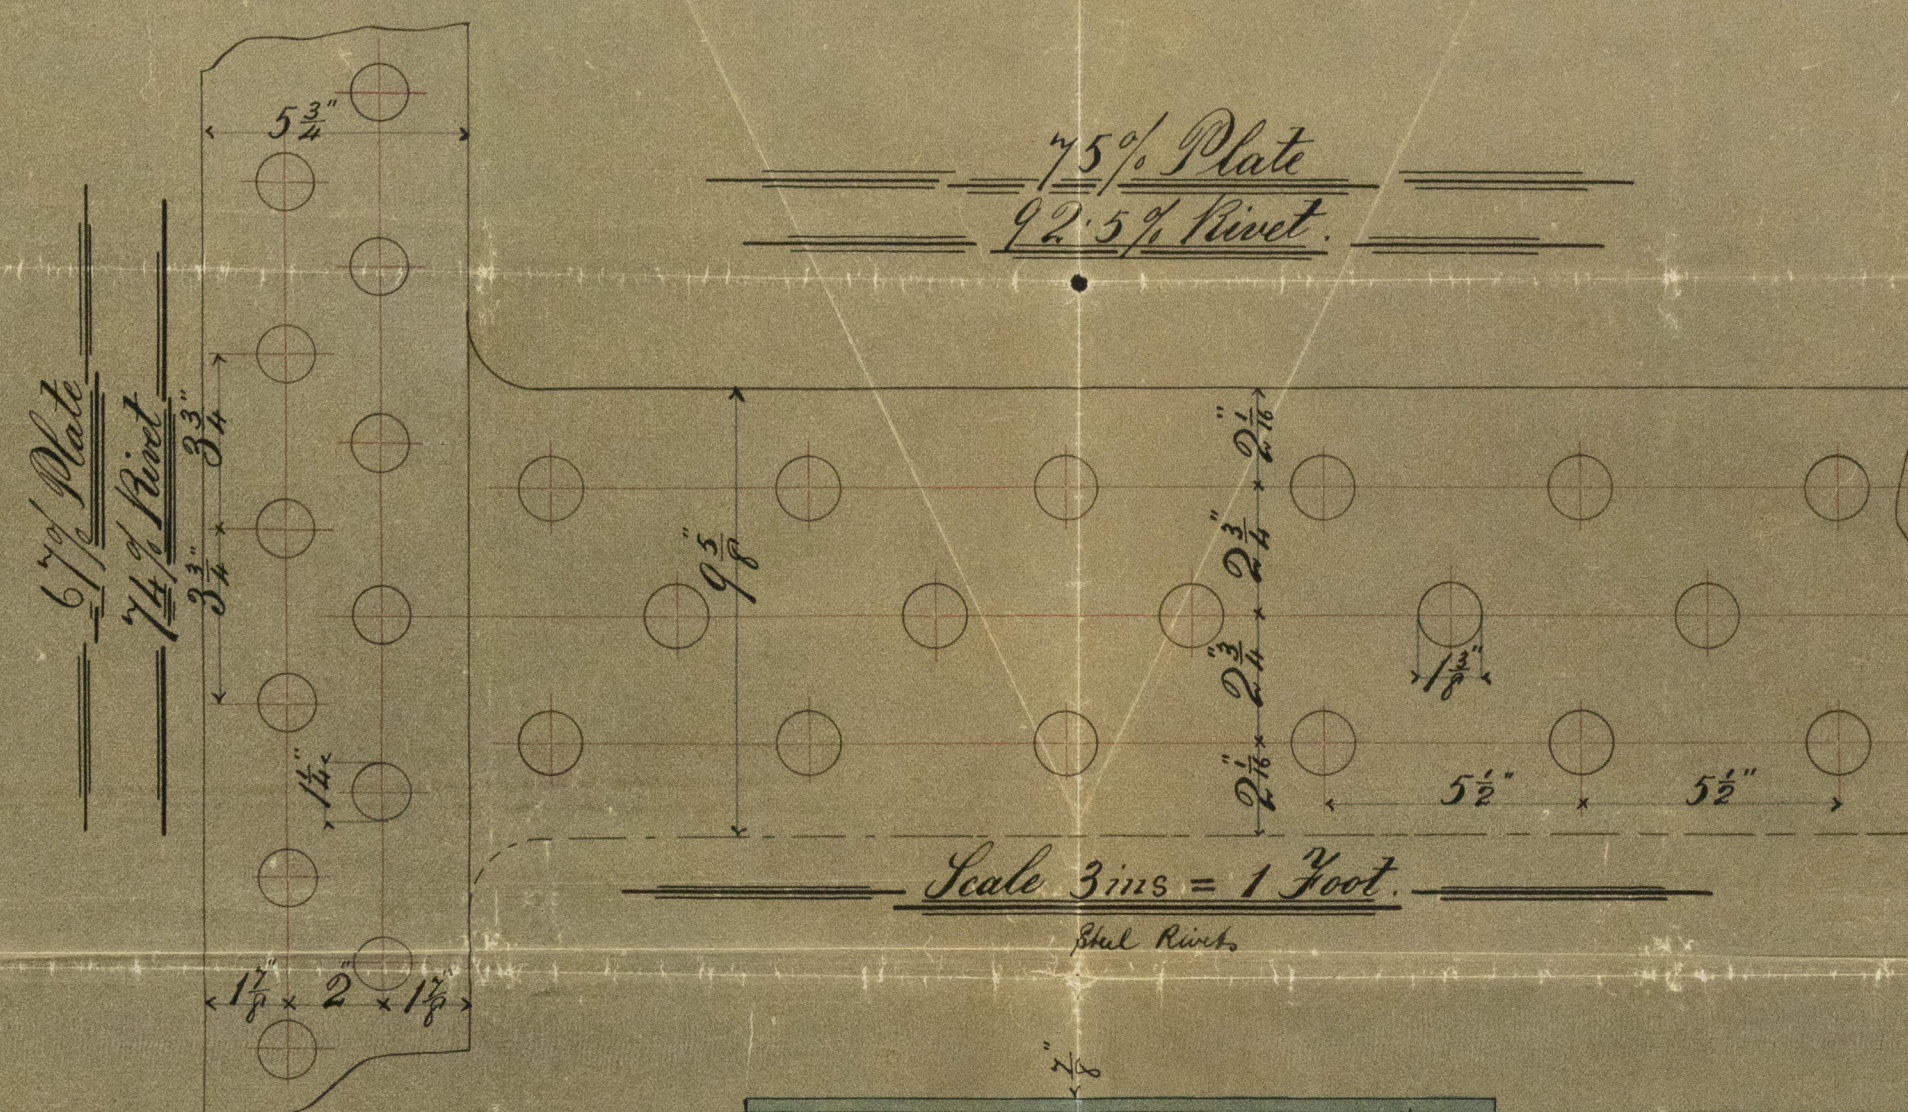 5 3/4"
75% Plate
92·5% Rivet.
67% Plate
74% Rivet
3 3/4"
3 3/4"
9 5/8"
2 1/16"
2 3/4"
2 3/4"
2 1/16"
1 3/8"
1 1/4"
5 1/2" 5 1/2"
Scale 3ins = 1 Foot.
Steel Rivets
1 7/8" 2" 1 7/8"
7/8"